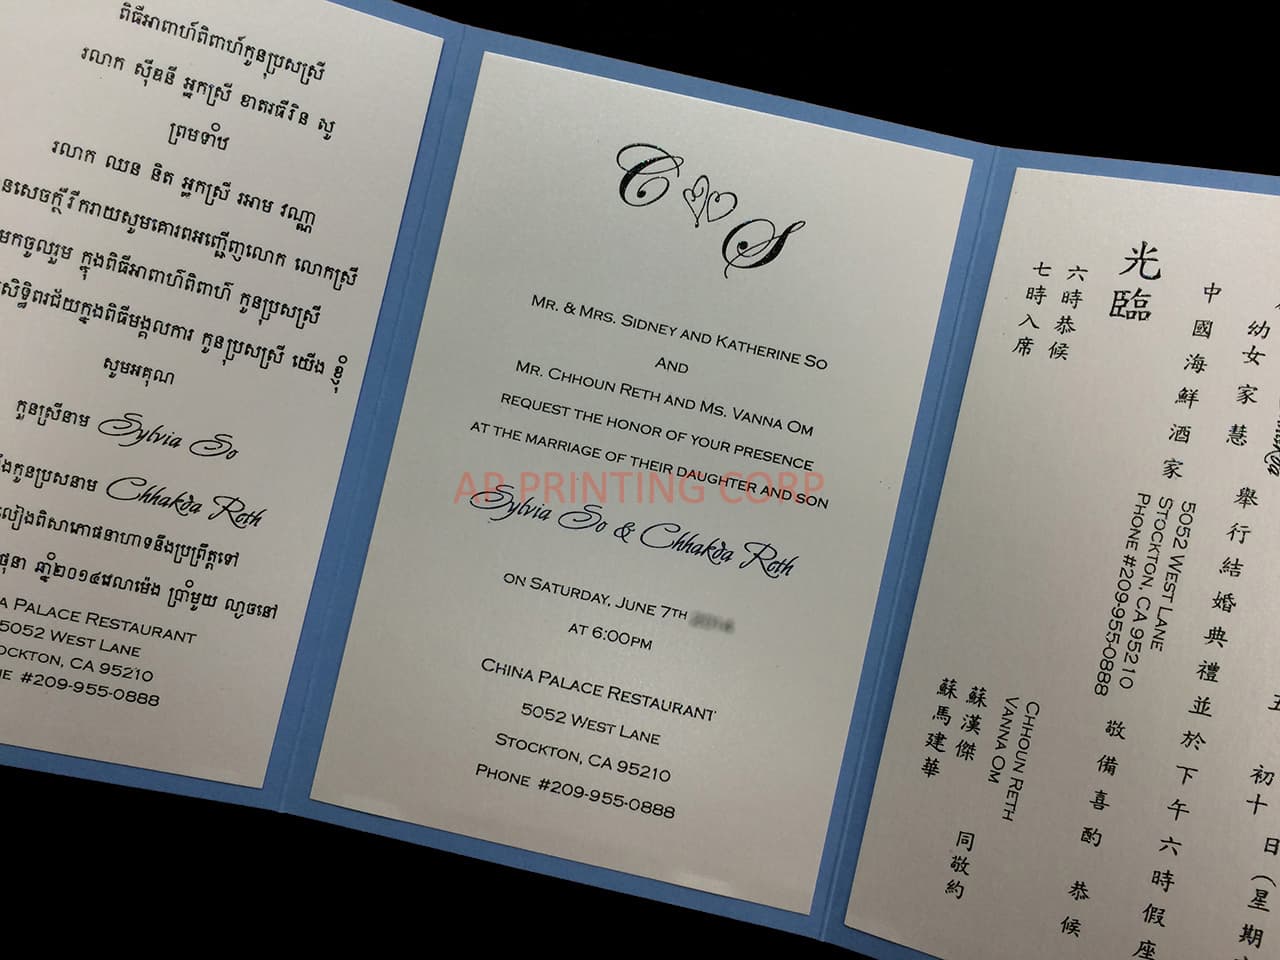 ពិធីអាពាហ៍ពិពាហ៍កូនប្រុសស្រី
រលាក ស៊ីឌនី អ្នកស្រី ខាតរធីរិន សូ
ព្រមទាំង
រលាក ឈន និត អ្នកស្រី រអាម វណ្ណា
សូមគោរពអញ្ជើញលោក លោកស្រី
ក្នុងពិធីអាពាហ៍ពិពាហ៍ កូនប្រុសស្រី
ក្នុងពិធីមង្គលការ កូនប្រុសស្រី យើងខ្ញុំ
សូមអគុណ
កូនស្រីនាម Sylvia So
កូនប្រុសនាម Chhakda Roth
PALACE RESTAURANT
5052 WEST LANE
STOCKTON, CA 95210
#209-955-0888
C S
MR. & MRS. SIDNEY AND KATHERINE SO
AND
MR. CHHOUN RETH AND MS. VANNA OM
REQUEST THE HONOR OF YOUR PRESENCE
AT THE MARRIAGE OF THEIR DAUGHTER AND SON
AP PRINTING CORP
Sylvia So & Chhakda Roth
ON SATURDAY, JUNE 7TH
AT 6:00PM
CHINA PALACE RESTAURANT
5052 WEST LANE
STOCKTON, CA 95210
PHONE #209-955-0888
幼女家慧 舉行結婚典禮並於下午六時假座
五 初十日（星期
中國海鮮酒家
5052 WEST LANE
STOCKTON, CA 95210
PHONE #209-955-0888
敬備喜酌 恭候
光臨
六時恭候
七時入席
CHHOUN RETH
VANNA OM
蘇漢傑
蘇馬建華
同敬約